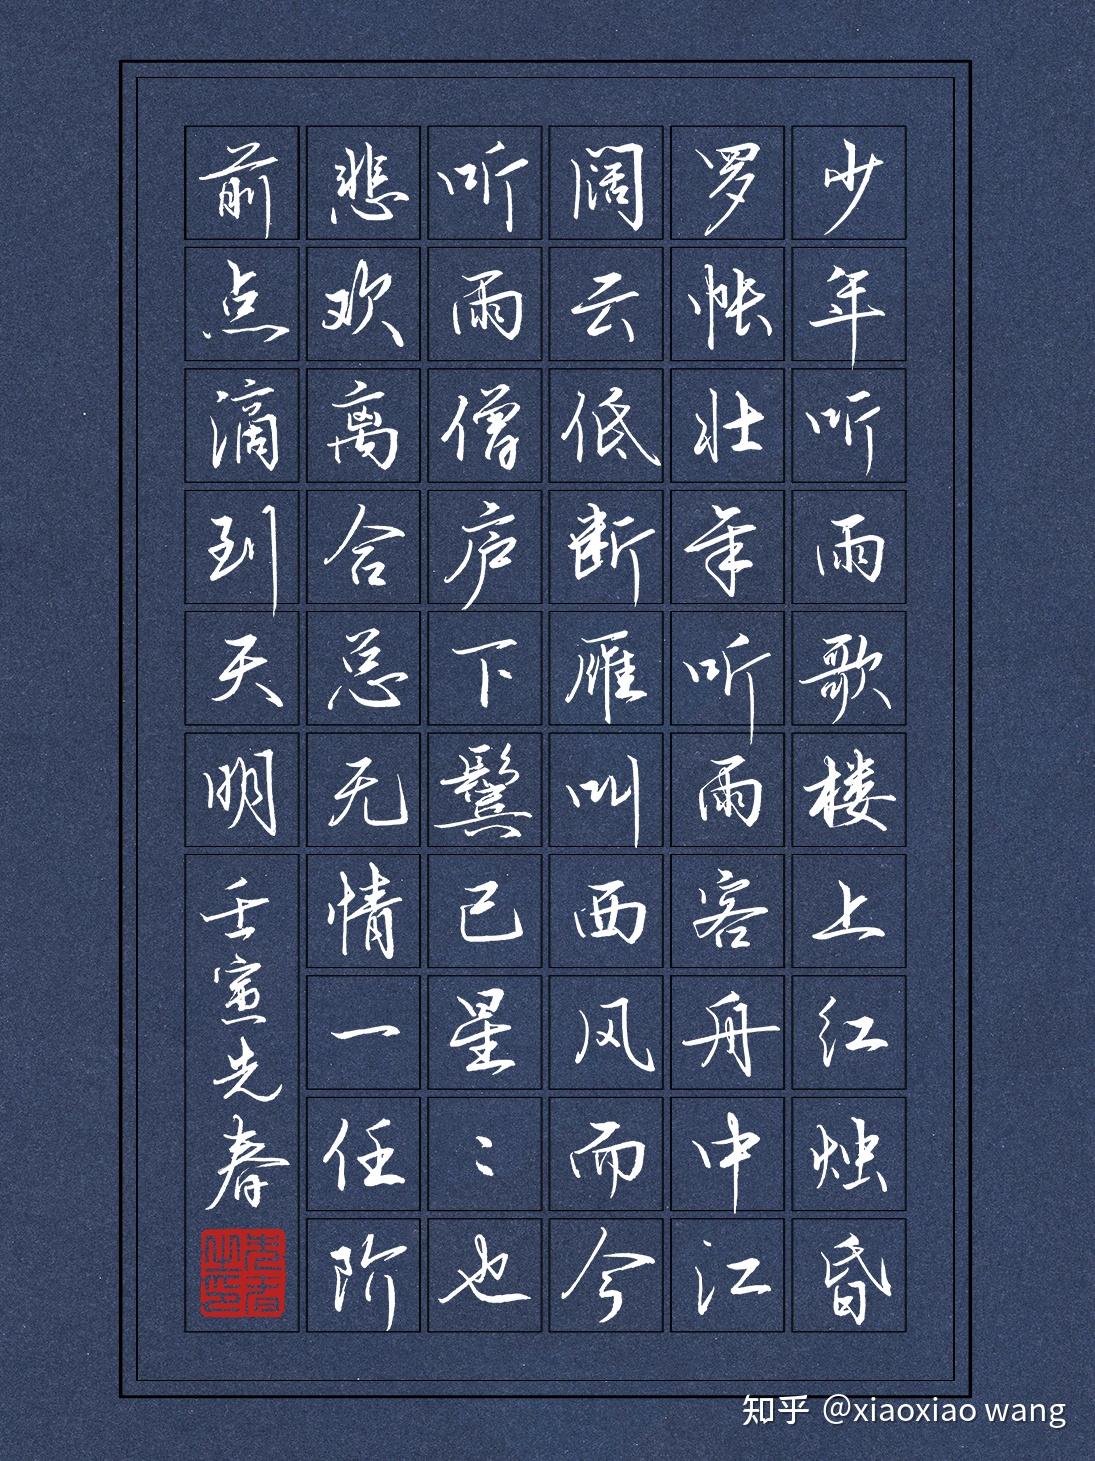 少年听雨歌楼上红烛昏
罗帐壮年听雨客舟中江
阔云低断雁叫西风而今
听雨僧庐下鬓已星〻也
悲欢离合总无情一任阶
前点滴到天明
壬寅先春
知乎 @xiaoxiao wang